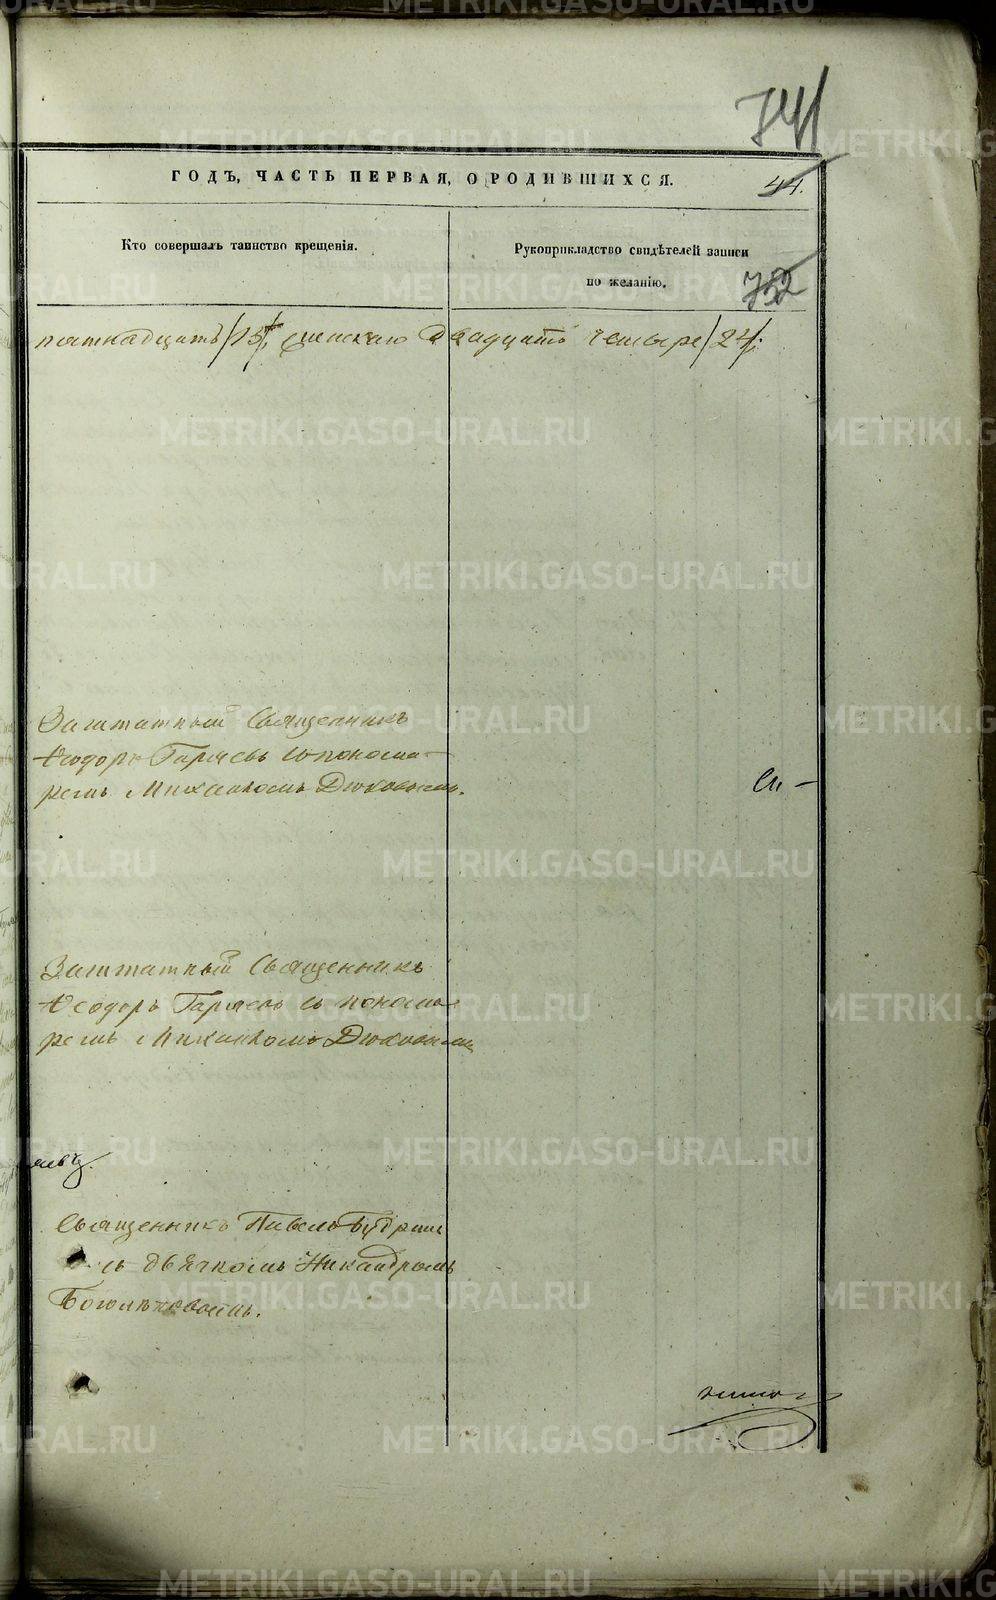 741
ГОДЪ, ЧАСТЬ ПЕРВАЯ, О РОДИВШИХСЯ.
44.
Кто совершалъ таинство крещенія.
Рукоприкладство свидѣтелей записи
по желанію.
752
пятнадцать /15/ женскаго двадцать четыре /24/.
Заштатный Священникъ
Ѳеодоръ Гаряевъ съ понома-
ремъ Михаиломъ Дюковымъ.
Си-
Заштатный Священникъ
Ѳеодоръ Гаряевъ съ понома-
ремъ Михаиломъ Дюковымъ
Священникъ Павелъ
съ дьячкомъ Никандромъ
METRIKI.GASO-URAL.RU